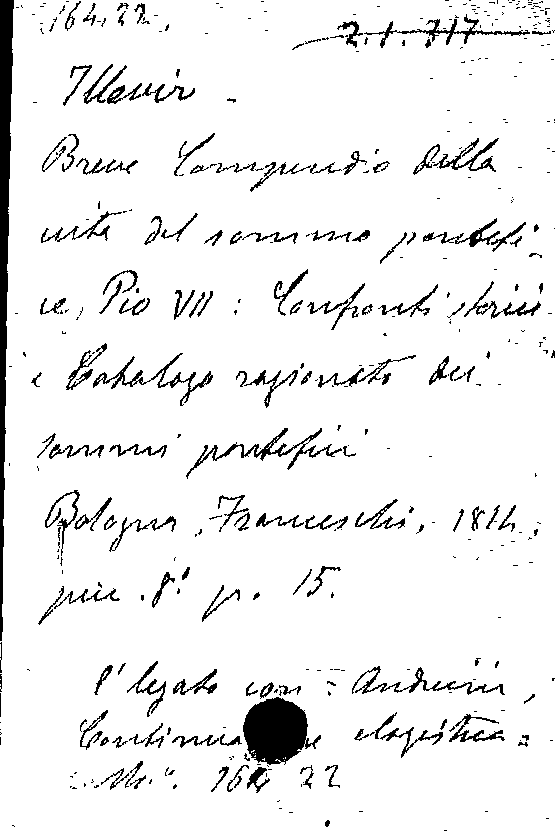 164.22.
2.1.317
Breve Compendio della
vita del sommo pontefi-
ce, Pio VII : Confronti storici
e Catalogo ragionato dei
sommi pontefici
Bologna, Franceschi, 1814.
picc. 8° p. 15.
È legato con = Andreini,
elogistica =
164 22